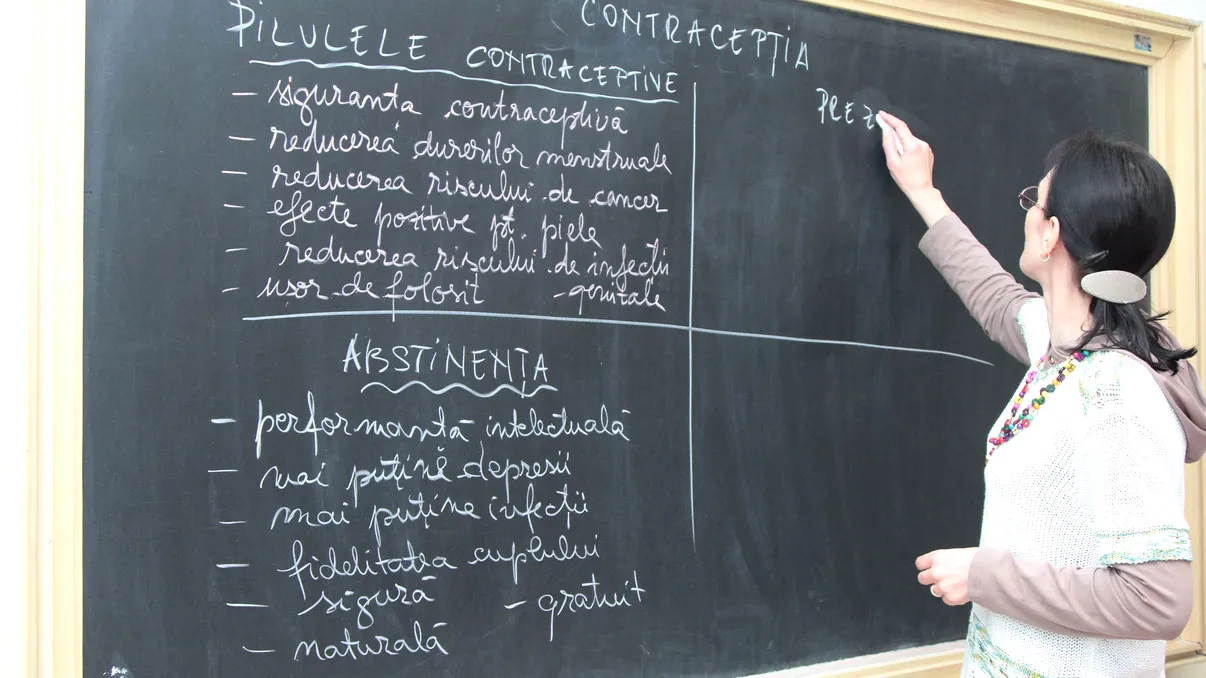 CONTRACEPȚIA
PILULELE CONTRACEPTIVE
- siguranța contraceptivă
- reducerea durerilor menstruale
- reducerea riscului de cancer
- efecte pozitive pt. piele
- reducerea riscului de infecții
- genitale
- ușor de folosit
ABSTINENȚA
- performantă intelectuală
- mai puține depresii
- mai puține infecții
- fidelitatea cuplului
- sigură - gratuit
- naturală
PREZ